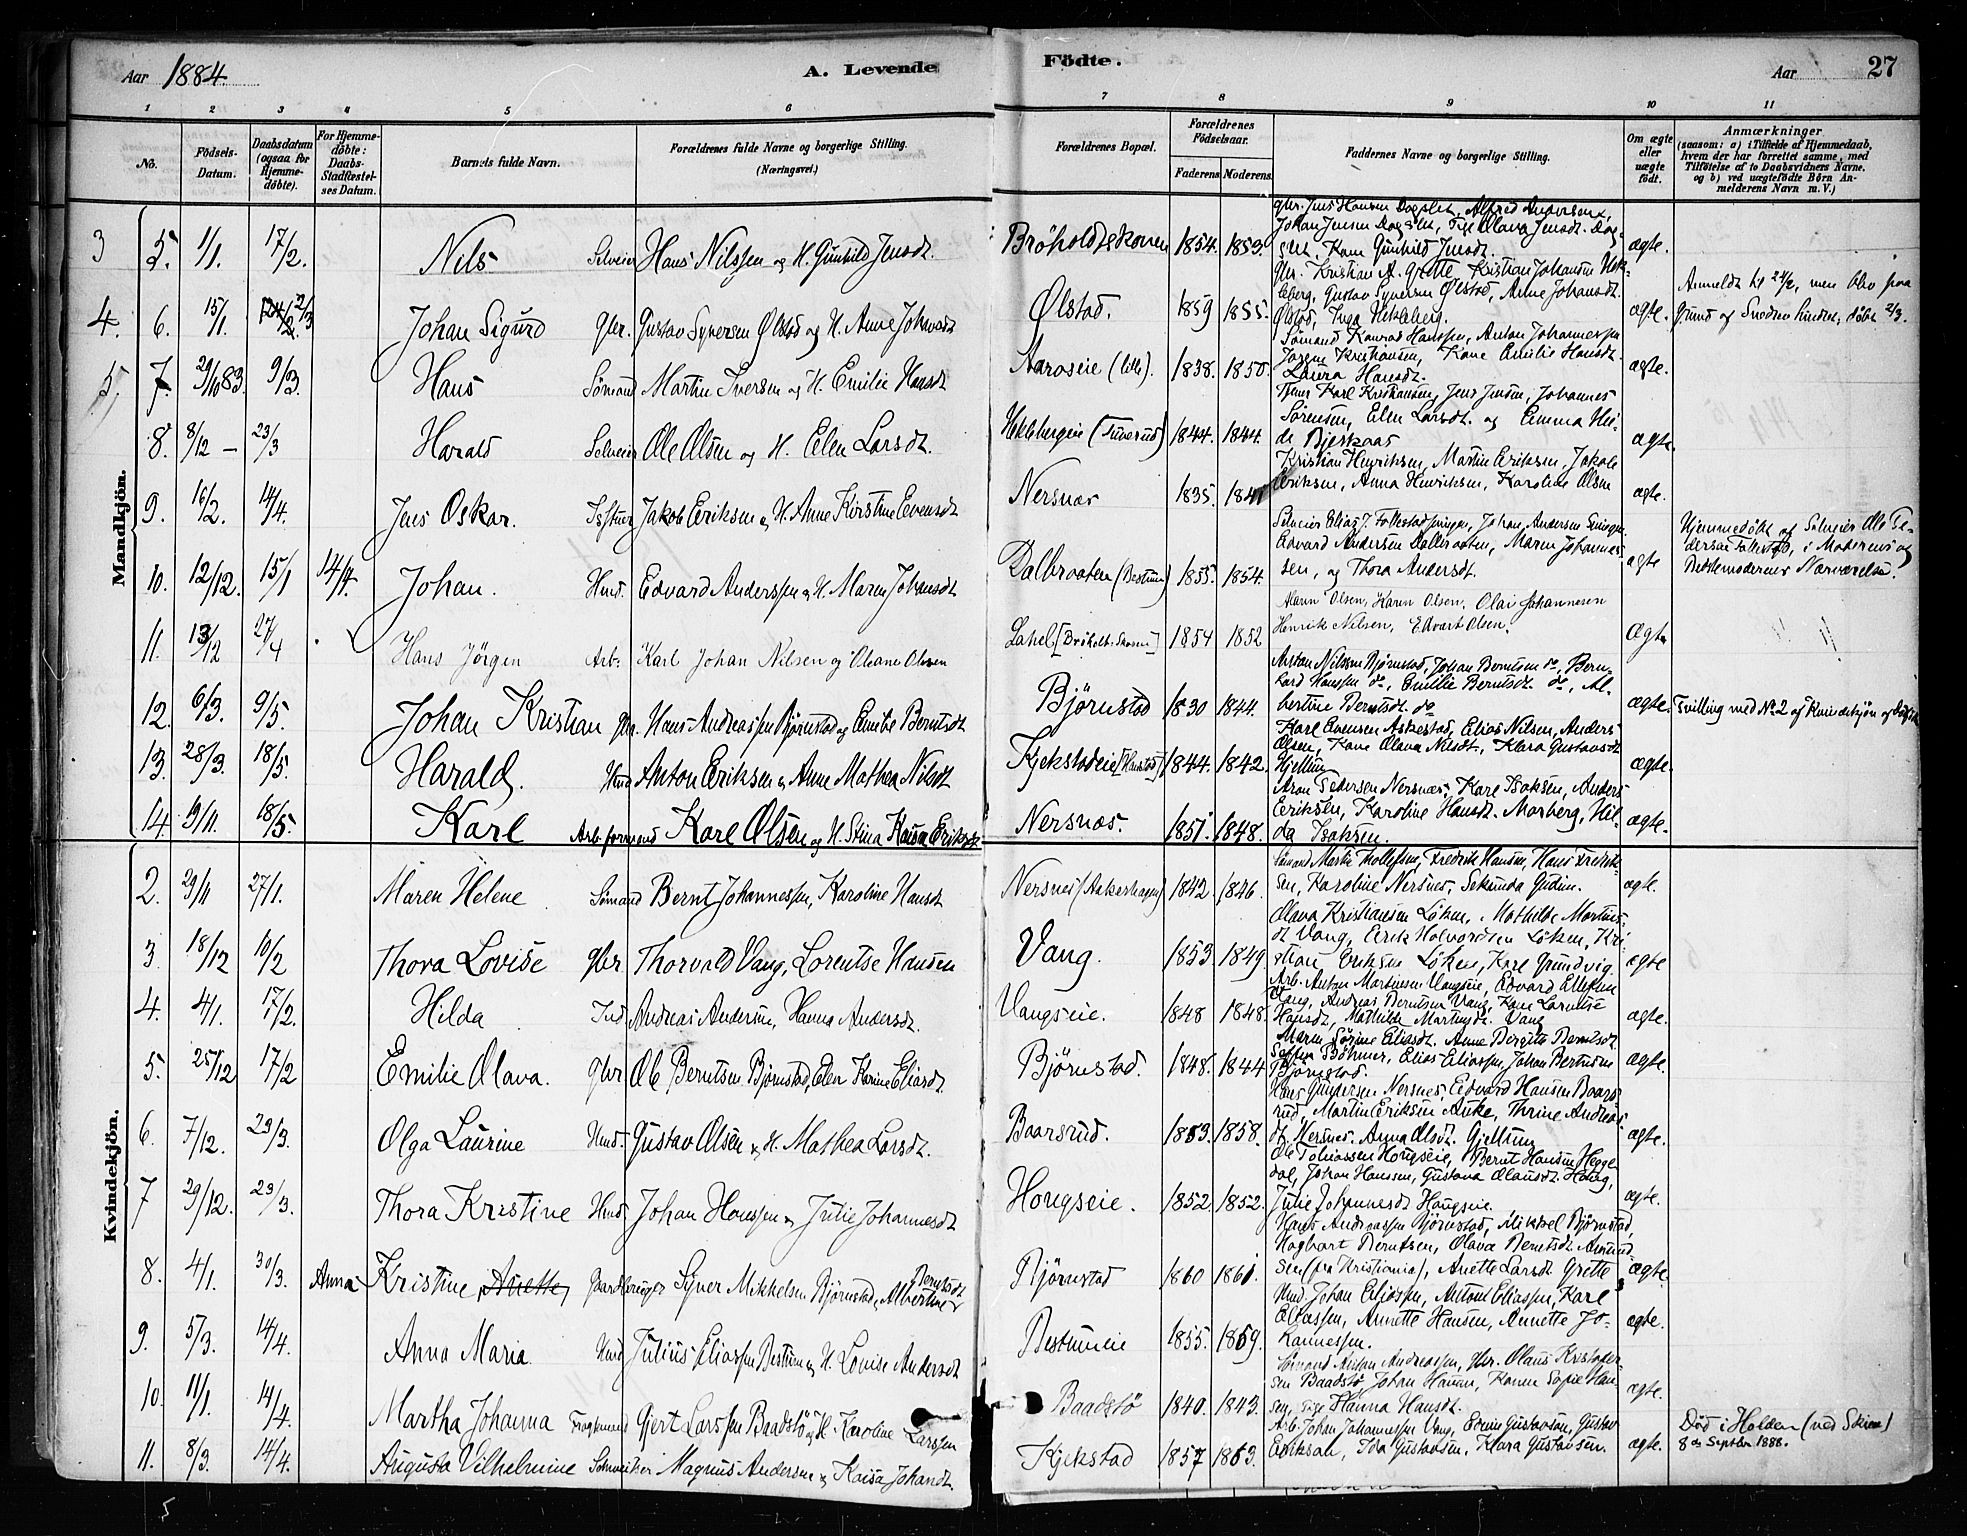 Aar 1884. A. Levende Födte. Aar 27
1 2 3 4 5 6 7 8 9 10 11
No. Födsels-Datum. Daabsdatum (ogsaa for Hjemmedöbte). For Hjemmedöbte: Daabs-Stadfæstelses Datum. Barnets fulde Navn. Forældrenes fulde Navne og borgerlige Stilling. (Næringsvei.) Forældrenes Bopæl. Forældrenes Födselsaar. Faderens Moderens. Faddernes Navne og borgerlige Stilling. Om ægte eller uægte födt. Anmærkninger (saasom: a) i Tilfælde af Hjemmedaab, hvem der har forrettet samme, med Tilföielse af to Daabsvidners Navne, og b) ved uægtefödte Börn Anmelderens Navn m. V.)
Mandkjön.
3 5. 1/1. 17/2. Nils Selveier Hans Nilssen og H. Gunhild Jensdt. Bröholdtskoven 1854. 1853. Gbr. Jens Hansen Dagslet, Alfred Andersen, Johan Jensen Dagslet, Pige Olava Jensdt. Dagslet, Kone Gunhild Jensdt. ægte.
4. 6. 15/1. 24/2 2/3 Johan Sigurd Gbr. Gustav Syversen Ølstad og H. Anne Johnsdt Ølstad. 1859 1855. Gbr. Kristian A. Grette, Kristian Johansen Hekleberg, Gustav Syversen Ølstad, Anne Johansdt. Ølstad, Inga Hekleberg. ægte. Anmeldt til 24/2, men blev paa Grund af Snedrev hindret, döbt 2/3.
5. 7. 29/10 83. 9/3. Hans Sömand Martin Iversen og H. Emilie Hansdt Aaroseie (lille). 1838. 1850. Sömand Konrad Hanssen, Anton Johannessen Jörgen Kristiansen, Kone Emilie Hansdt. Laura Hansdt. ægte.
8. 8/12 – 23/3 Harald Selveier Ole Olsen og H. Elen Larsdt. Heklebergeie (Tuverud) 1844. 1844. Tjener Karl Kristiansen, Jens Jensen, Johannes Sörensen, Elen Larsdt. og Emma Bjerkaas ægte.
9. 16/2. 14/4. Jens Oskar. Jakob Eriksen og H. Anne Kirstine Evensdt Nersnæs 1835. Kristian Henriksen, Martin Eriksen, Jakob Eriksen, Anna Henriksen, Karoline Olsen ægte.
10. 12/12. 15/1 14/4. Johan. Hmd. Edvard Anderssen og H. Maren Johansdt Dalbraaten (Bestum) 1855. 1854. Selveier Elias J. Follestad, Johan Andersen Edvard Andersen Dalbraaten, Maren Johannessen, og Thora Andersdt. ægte Hjemmedöbt af Selveier Ole Pedersen Follestad, i Moderens og Bedstemoderens Nærværelse.
11. 13/12 27/4 Hans Jörgen Arb: Karl Johan Nilsen og Oleane Olsen Lahel [Bröholt-Skoven] 1854 1852 Maren Olsen, Karen Olsen, Olai Johannesen Henrik Nilsen, Edvart Olsen. Ægte
12. 6/3. 9/5. Johan Kristian Gbr. Hans Andreassen Björnstad og Emilie Berntsdt Björnstad 1830 1844. Anton Nilssen Björnstad, Johan Berntsen do, Bernhard Hanssen do, Emilie Berntsdt. do, Albertine Berntsdt. do ægte. Tvilling med No 2 af Kvindekjön af
13. 28/3. 18/5. Harald. Hmd Anton Eriksen og Anne Mathea Nilsdt Kjekstadeie 1844. 1842. Karl Evensen Askestad, Elias Nilsen, Anders Olsen, Kone Olava Nilsdt, Klara Gustavsdt Gjellum ægte.
14. 19/11. 18/5. Karl Arb. formand Karl Olsen og H. Stina Kaisa Eriksdt Nersnæs. 1851. 1848. Aron Pedersen Nersnæs, Karl Isaksen, Anders Eriksen, Karoline Hansdt. Morberg, Hilda Isaksen. ægte.
Kvindekjön.
2. 29/11 27/1. Maren Helene Sömand Bernt Johannessen, Karoline Hansdt Nersnes (Aakerhagen) 1842. 1846. Sömand Martin Thollefsen, Fredrik Hansen, Hans Fredriksen, Karoline Nersnes, Sekunda Gudim. ægte.
3. 18/12 10/2 Thora Lovise Gbr Thorvald Vang, Lorentse Hansen Vang. 1853. 1849. Olava Kristiansen Löken, Mathilde Martinsdt Vang, Eirik Halvordsen Löken, Kristian Eriksen Löken, Karl Grundvig. ægte
4. 4/1. 17/2. Hilda Ind Andreas Andersen, Hanna Andersdt. Vangseie. 1848 1848. Arb. Anton Martinsen Vangseie, Edvard Ellefsen Vang, Andreas Berntsen Vang, Kone Larentse Hansdt, Mathilde Martinsdt. Vang ægte.
5. 25/12 17/2 Emilie Olava. Gbr Ole Berntsen Björnstad, Elen Karine Eliasdt. Björnstad. 1848. 1844 Maren Sörine Eliasdt. Anne Birgitte Berntsdt Böhmer, Elias Eliassen, Johan Berntsen Björnstad. ægte.
6. 7/12. 23/3. Olga Laurine Hmd. Gustav Olsen og H. Mathea Larsdt. Baarsrud. 1853. 1858. Hans Gundersen Nersnes, Edvard Hansen Baarsrud, Martin Eriksen Auke, Thrine Andreasdt. Nersnes. Anna Olsdt. Gjellum ægte.
7 29/12. 23/3. Thora Kristine Hmd. Johan Hanssen og Julie Johannesdt Hougseie. 1852. 1852. Ole Tobiassen Hougseie, Bernt Hansen Heggedal, Johan Hanssen, Gustava Olausdt. Houg, Julie Johannesdt Hougseie. ægte.
8. 4/1. 30/3. Anna Kristine Anette Gaardbruger Syver Mikkelsen Björnstad, Albertine Berntsdt Björnstad 1860 1861. Hans Andreassen Björnstad, Mikkel Björnstad, Hagbart Berntsen, Olava Berntsdt. Amundsen (fra Kristiania), Anette Larsdt. Grette ægte.
9. 5/3. 14/4. Anna Maria Hmd Julius Eliassen Bestum og H. Lovise Andersdt Bestumeie 1855. 1859. Hmd. Johan Eliassen, Anton Eliassen, Karl Eliassen, Annette Hansen, Annette Johannessen. ægte.
10. 11/1. 14/4. Martha Johanna Fragtmand Gjert Larssen Baadstö og H. Karoline Larssen Baadstö 1840. 1843. Sömand Anton Andreassen, Gbr. Olaus Kristofersen Baadstö Johan Hansen, Karen Sofie Hansen, Pige Hanna Hansdt. ægte.
11. 8/3. 14/4. Augusta Vilhelmine Schweitzer Magnus Andersen og Kaisa Johansdt. Kjekstad 1857 1863. Arb. Johan Johannessen Vang, Edvin Gustavsen, Gustav Eriksen, Ida Gustavsen, Klara Gustavsen. ægte. Död i Holden (ved Skien) 8de September 1886.